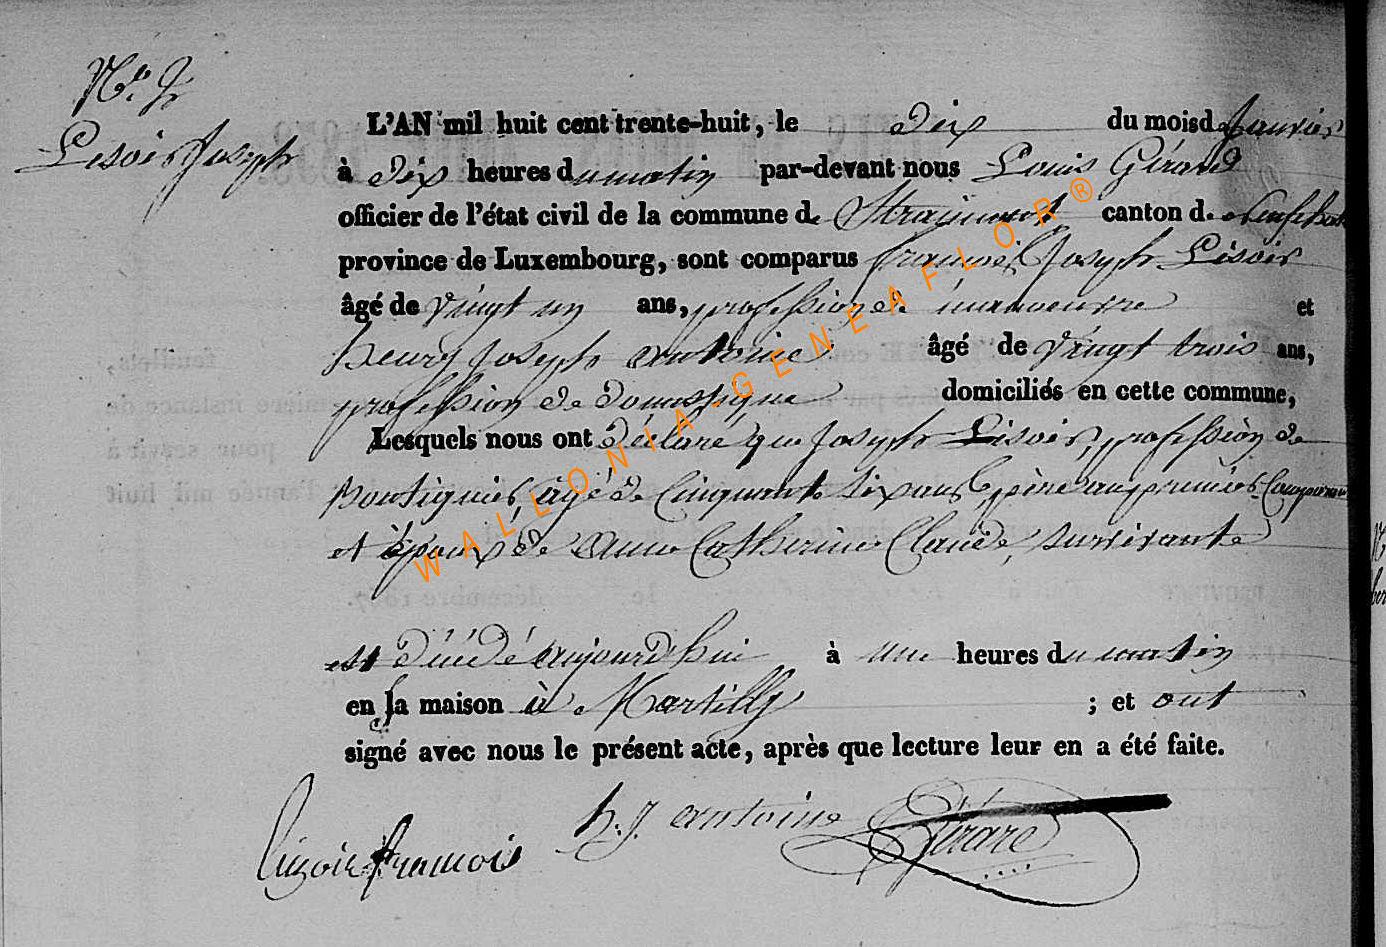 N.o 2
Lisoir Joseph
L'AN mil huit cent trente-huit, le dix du mois d Janvier
à dix heures du matin par-devant nous Louis Gérard
officier de l'état civil de la commune de Straimont canton de
province de Luxembourg, sont comparus François Joseph Lisoir
âgé de vingt un ans, profession de manoeuvre et
henry Joseph antoine âgé de vingt trois ans,
profession de domestique domiciliés en cette commune,
Lesquels nous ont déclaré que Joseph Lisoir, profession de
âgé de Cinquante six ans,
et époux de anne Catherine Claude, survivante
est décédé aujourd'hui à une heures du matin
en sa maison à Martilly ; et ont
signé avec nous le présent acte, après que lecture leur en a été faite.
Lisoir françois h. J. antoine Gérard
WALLONIA-GENEAFLOR®